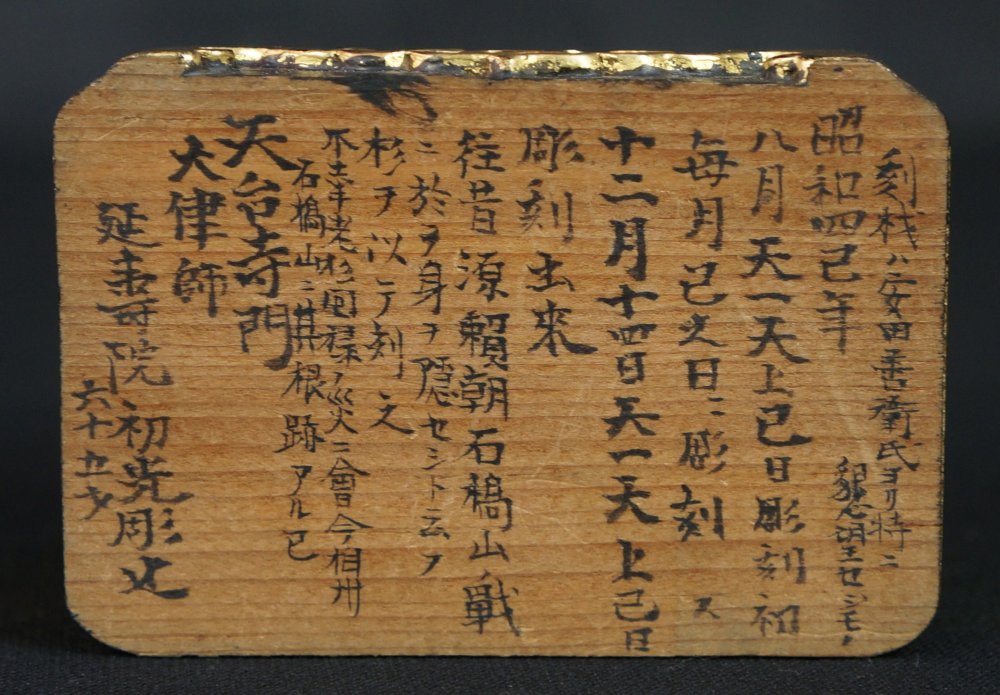 刻材ハ安田善衛氏ヨリ特ニ
懇望セシモノ
昭和四己年
八月天一天上己日彫刻初
毎月己之日ニ彫刻ス
十二月十四日天一天上己日
彫刻出來
往昔源賴朝石橋山ノ戰
ニ於テ身ヲ隱セシト云フ
杉ヲ以テ刻之
年老杉風ノ災ニ會今相州
石橋山ニ其根跡アル已
天台寺門
大律師
延壽院初彫之
六十五才